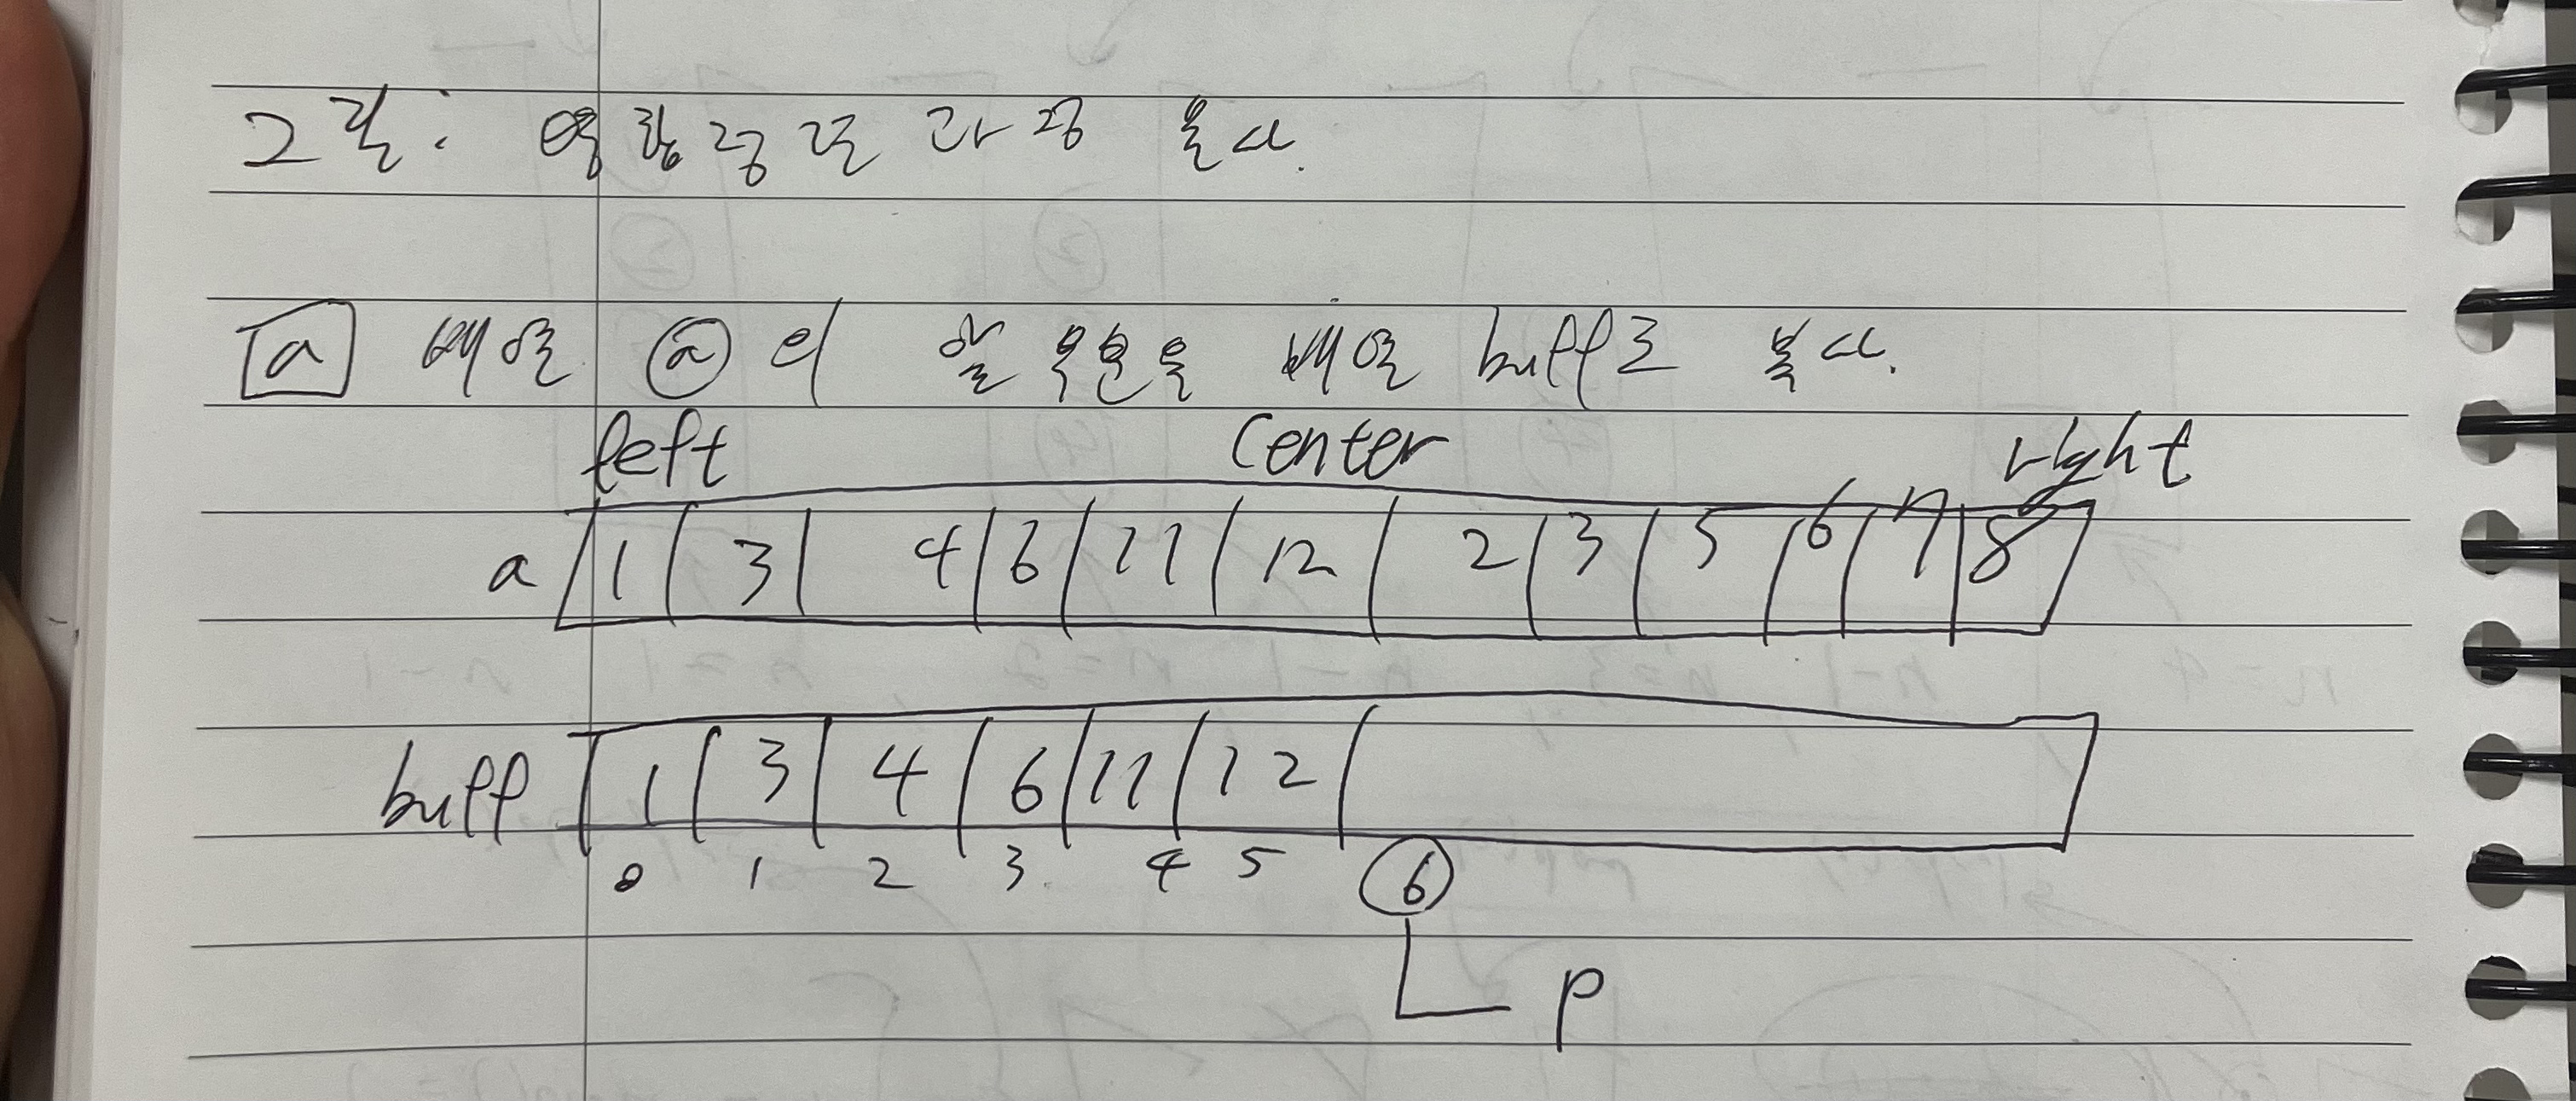 그림: 병합정렬 과정 복사.
a 배열 a의 앞 부분을 배열 buff로 복사.
left center right
a 1 3 4 6 11 12 2 3 5 6 7 8
buff 1 3 4 6 11 12
0 1 2 3 4 5 6
p